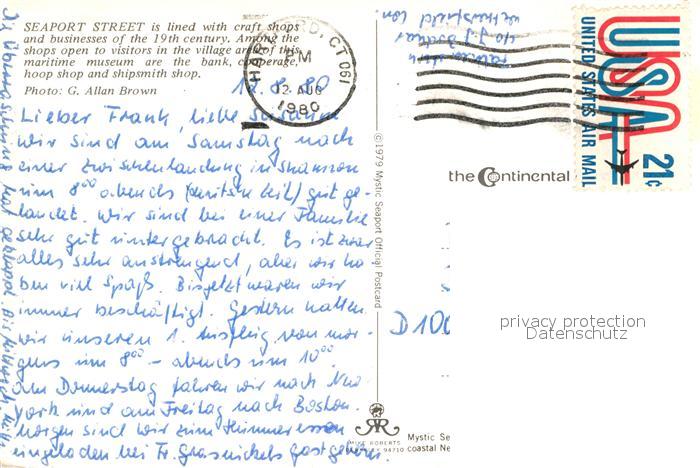 SEAPORT STREET is lined with craft shops
and businesses of the 19th century. Among the
shops open to visitors in the village area of this
maritime museum are the bank, cooperage,
hoop shop and shipsmith shop.
Photo: G. Allan Brown
12.8.80
Lieber Frank, liebe Susanne
wir sind am Samstag nach
einer Zwischenlandung in Shannon
um 8⁰⁰ abends (deutsche Zeit) gut ge-
landet. Wir sind bei einer Familie
sehr gut untergebracht. Es ist zwar
alles sehr anstrengend, aber wir ha-
ben viel Spaß. Bis jetzt waren wir
immer beschäftigt. Gestern hatten
wir unseren 1. Ausflug von mor-
gens um 8⁰⁰ - abends um 10⁰⁰.
Am Donnerstag fahren wir nach New
York und am Freitag nach Boston.
Morgen sind wir zum Hummeressen
eingeladen bei Fr. Grasnickels Gastgebern.
Überraschung hat geklappt. Bis
HARTFORD, CT 061
PM
12 AUG
1980
© 1979 Mystic Seaport Official Postcard
Wethersfield Con.
USA
21c
UNITED STATES AIR MAIL
the Continental
D 100
privacy protection
Datenschutz
MIKE ROBERTS
94710
Mystic Se
coastal Ne